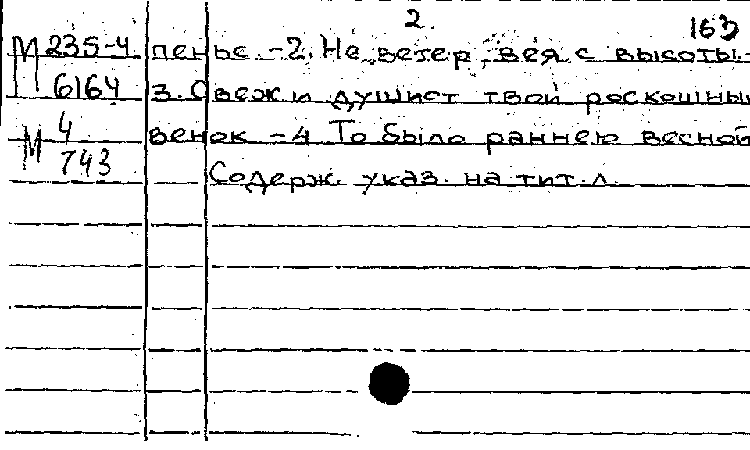 2. 163
М 235-4 пенье. -2. Не ветер, вея с высоты.-
6164 3. Свеж и душист твой роскошный
М 4 венок -4 То было раннею весной
743 Содерж. указ. на тит. л.